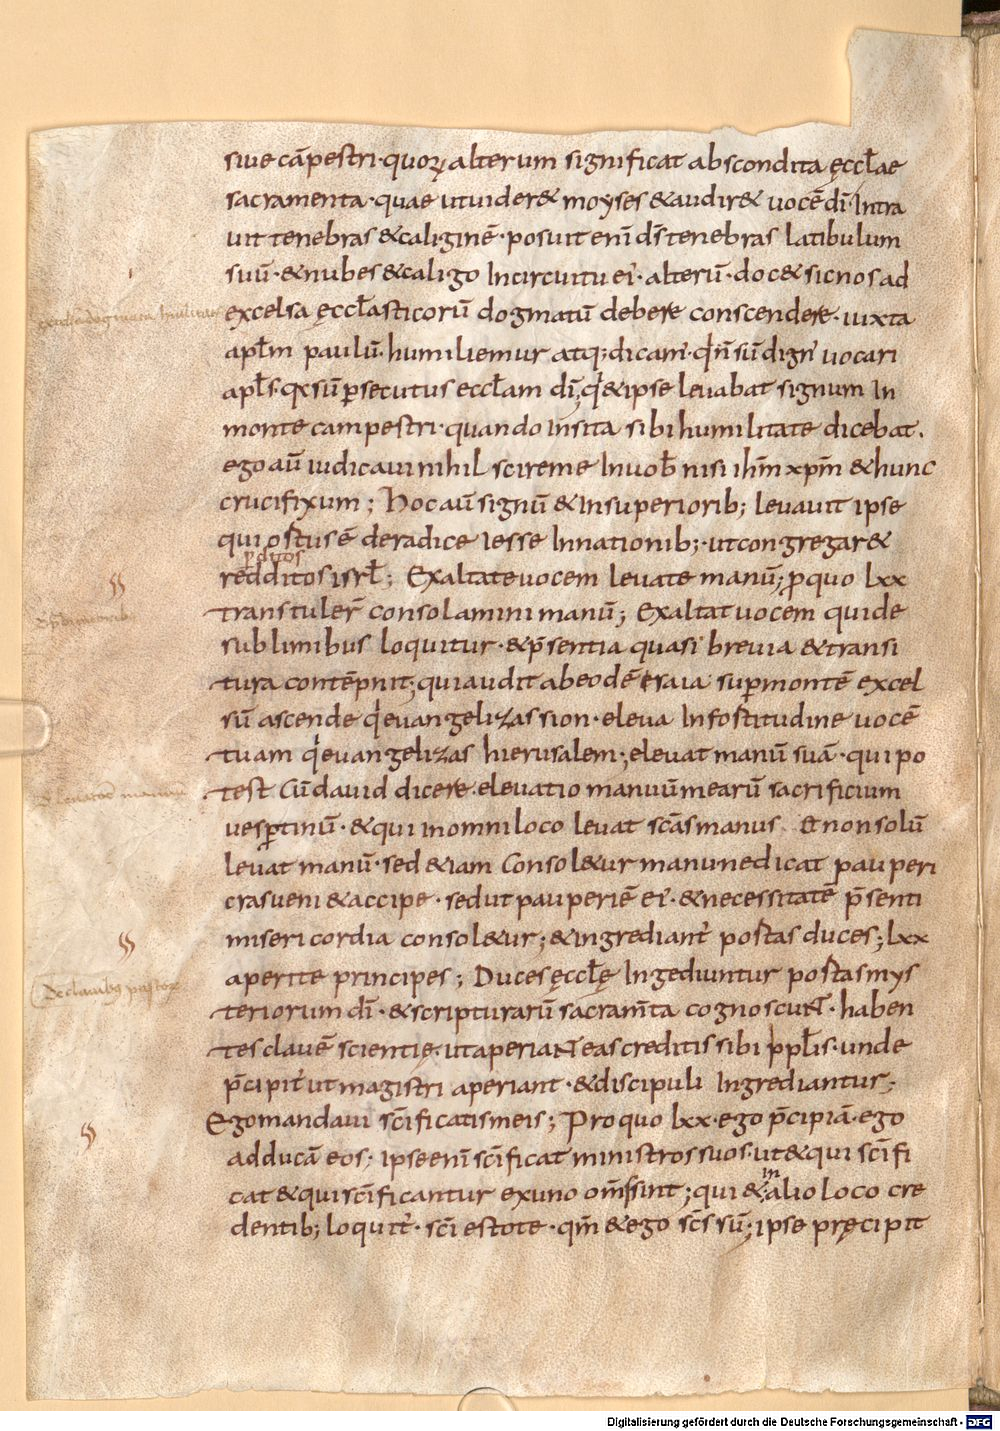 siue cāpestri · quoꝝ alterum significat abscondita ęccƚae
sacramenta · quae ut uider& moyses & audir& uocē dī · Intra
uit tenebras & caliginē · posuit enī ds̄ tenebras latibulum
suū · & nubes & caligo Incircuitu ei' · alterū · doc& sic nos ad
excelsa ęccƚasticorū dogmatū debere conscendere · iuxta
apƚm paulū · humiliemur atq; dicam' · qn̄ sū dign' uocari
apƚs · qa sū ꝑsecutus eccƚam dī; qi & ipse leuabat signum In
monte campestri · quando insita sibi humilitate dicebat ·
ego aū iudicaui nihil scire me Inuob' nisi ihm̄ xpm̄ & hunc
crucifixum ; Hoc aū signū & Insuperiorib; leuauit ipse
qui ostus ē deradice iesse Innationib; · ut congregar&
ꝑditos
redditos isrƚ ; Exaltate uocem leuate manū ; ꝓquo lxx
transtuler̄ consolamini manū ; Exaltat uocem qui de
sublimibus loquitur · & p̄sentia quasi breuia & transi
tura contēpnit ; qui audit abeodē esaia · suꝑmontē excel
sū ascende qi euangelizas sion · eleua Infortitudine uocē
tuam qi euangelizas hierusalem ; eleuat manū suā · qui po
test Cū dauid dicere · eleuatio manuū mearū sacrificium
uesꝑtinū · & qui inomni loco leuat scās manus Et non solū
leuat manū · sed & iam Consol&ur manu ne dicat pauperi
cras ueni & accipe · sed ut pauperiē ei' · & necessitatē p̄senti
misericordia consol&ur ; & ingrediant' portas duces ; lxx
aperite principes ; Duces ęccƚę Ingediuntur portas mys
teriorum dī · & scripturarū sacram̄ta cognoscunt · haben
tes clauē scientię · ut aperiant eas creditis sibi ppƚis · unde
p̄cipit' ut magistri aperiant · & discipuli Ingrediantur ;
Ego mandaui scīficatis meis ; Pro quo lxx · ego p̄cipiā · ego
adducā eos ; ipse enī scīficat ministros suos · ut & qui scīfi
cat & qui scīficantur ex uno om̄s sint ; qui & in alio loco cre
dentib; loquit' · scī estote · qm̄ & ego scs̄ sū ; ipse pręcipit
Digitalisierung gefördert durch die Deutsche Forschungsgemeinschaft - DFG